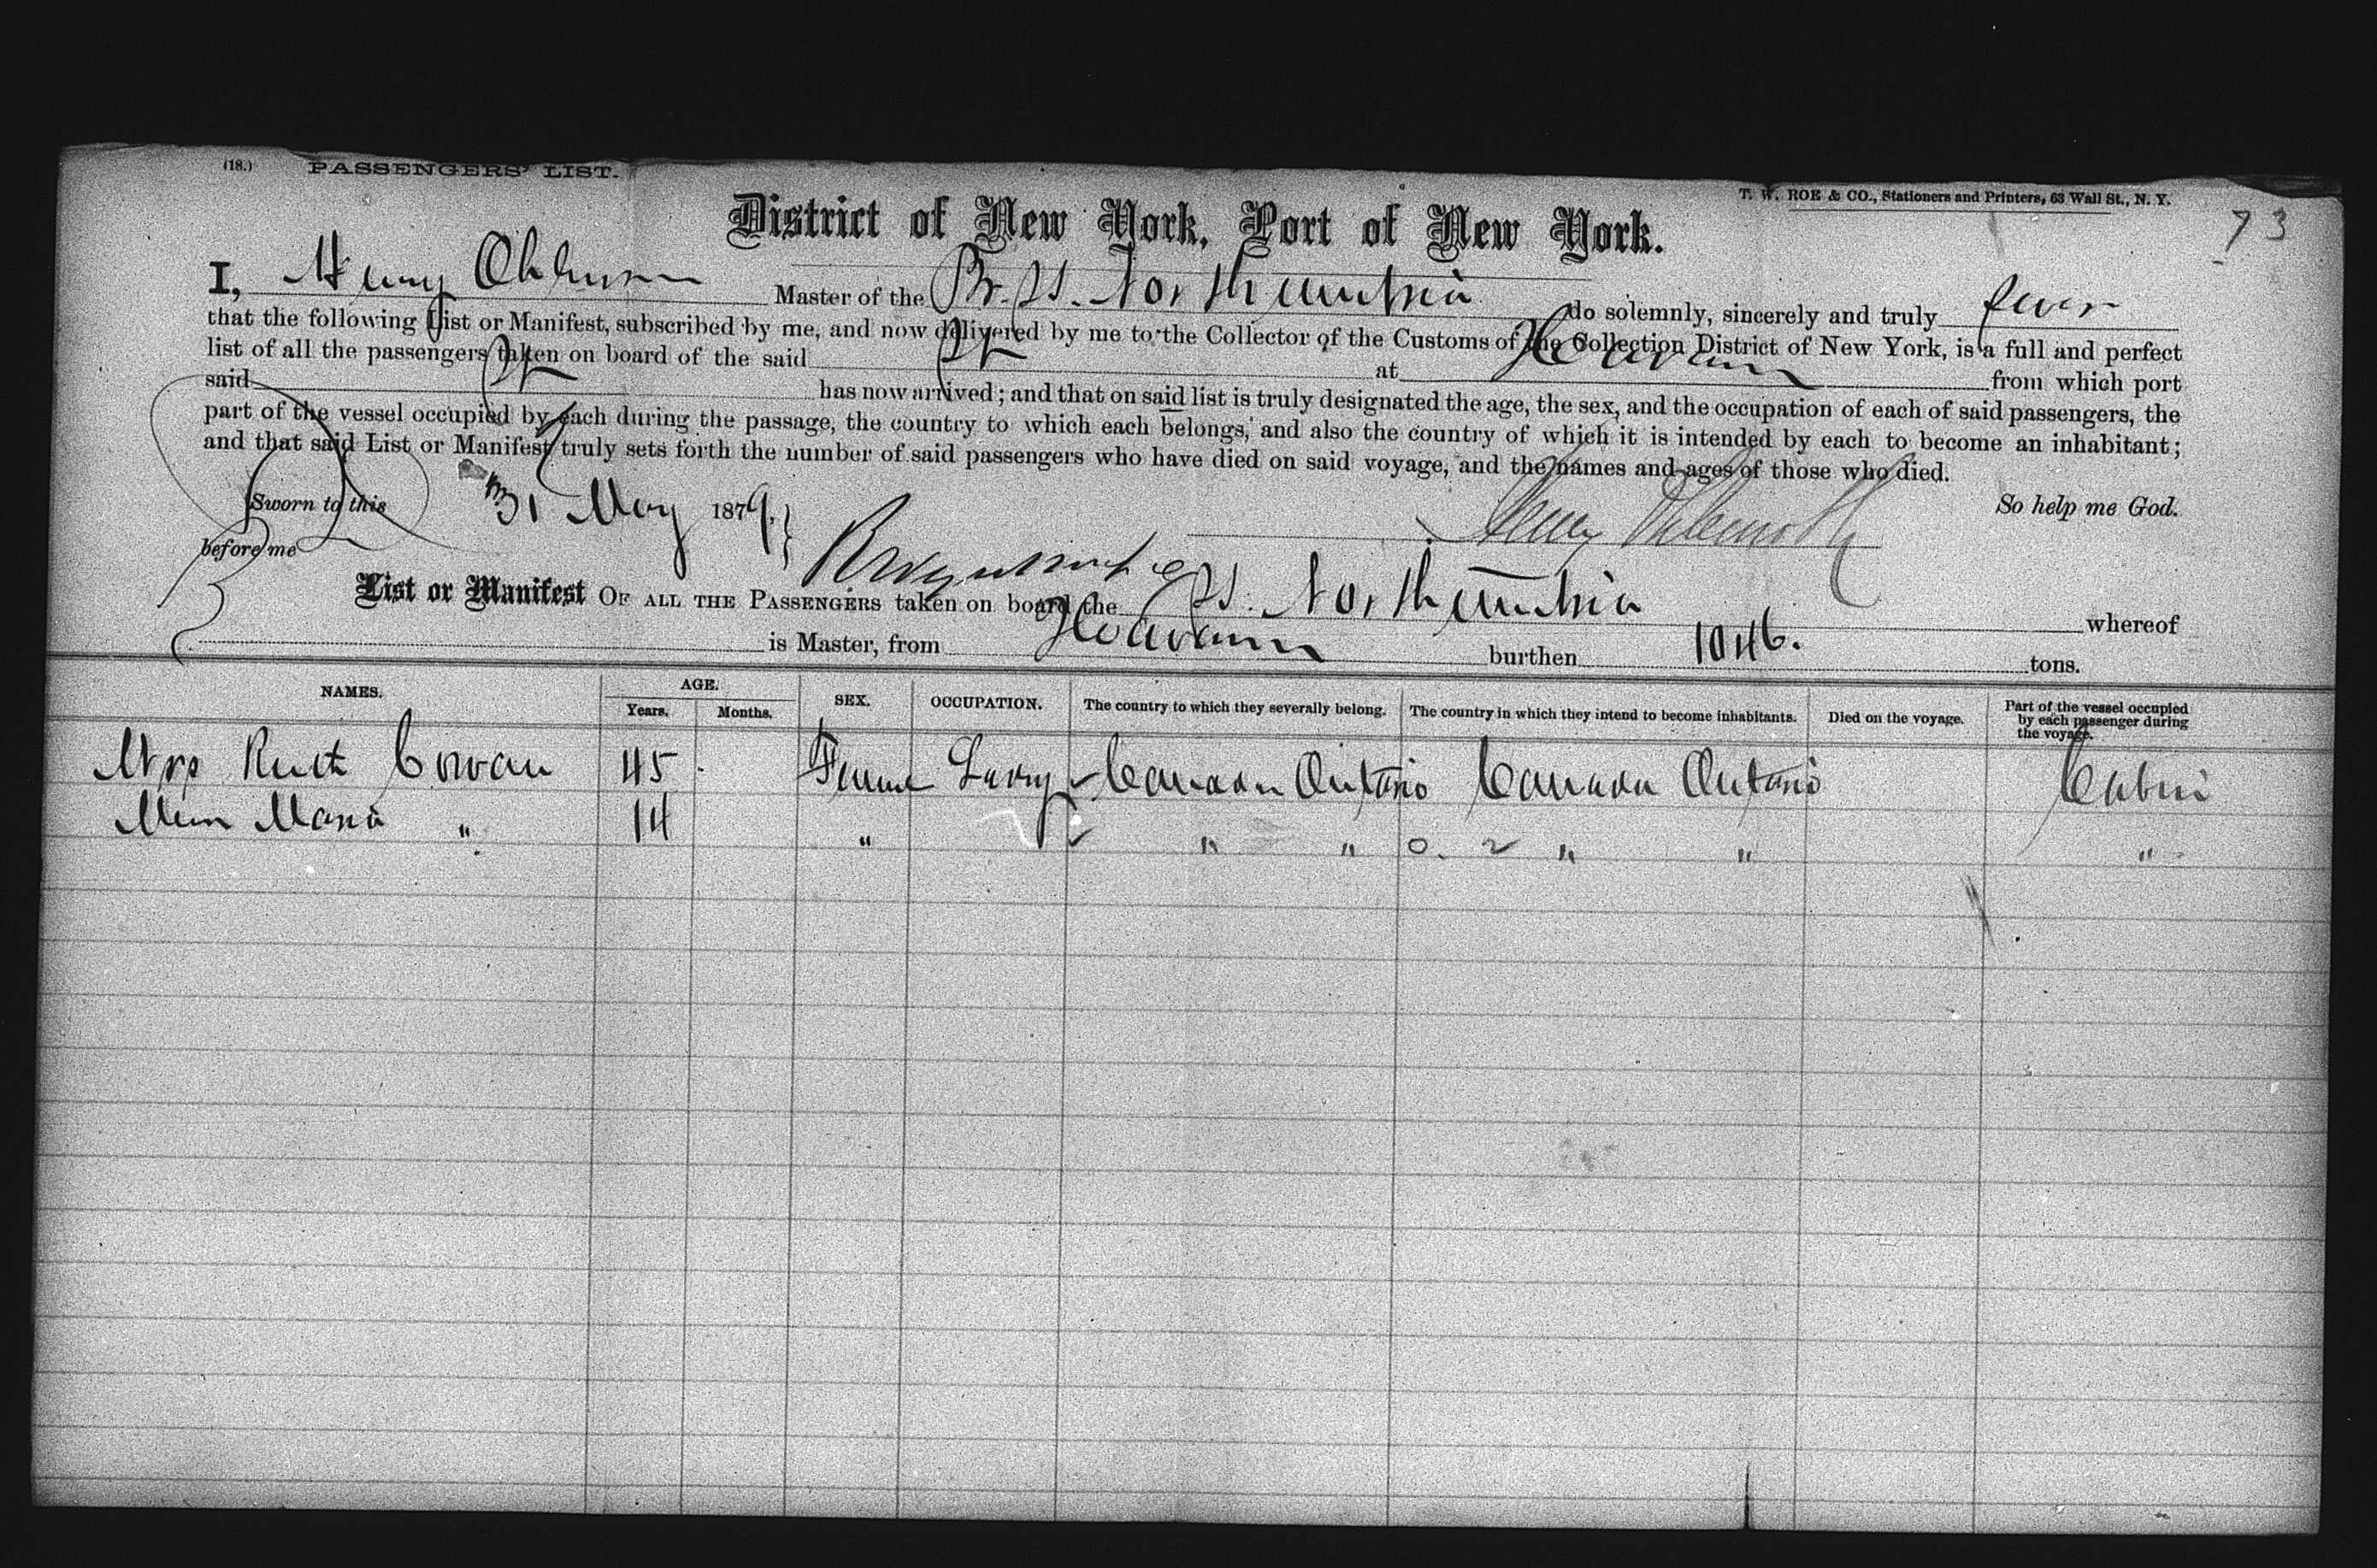 (18.) PASSENGERS' LIST.
T. W. ROE & CO., Stationers and Printers, 63 Wall St., N. Y.
73
District of New York, Port of New York.
I, Henry Master of the Br. SS. Northumbria do solemnly, sincerely and truly swear
that the following List or Manifest, subscribed by me, and now delivered by me to the Collector of the Customs of the Collection District of New York, is a full and perfect
list of all the passengers taken on board of the said at Havana from which port
said has now arrived; and that on said list is truly designated the age, the sex, and the occupation of each of said passengers, the
part of the vessel occupied by each during the passage, the country to which each belongs, and also the country of which it is intended by each to become an inhabitant;
and that said List or Manifest truly sets forth the number of said passengers who have died on said voyage, and the names and ages of those who died.
So help me God.
Sworn to this 31 May 1879.
before me
List or Manifest OF ALL THE PASSENGERS taken on board the SS. Northumbria whereof
is Master, from Havana burthen 1046. tons.
NAMES. AGE. Years. Months. SEX. OCCUPATION. The country to which they severally belong. The country in which they intend to become inhabitants. Died on the voyage. Part of the vessel occupied by each passenger during the voyage.
Mrs Ruth Cowan 45 Female Lady Canada Ontario Canada Ontario Cabin
Miss Maria " 14 " " " " " "